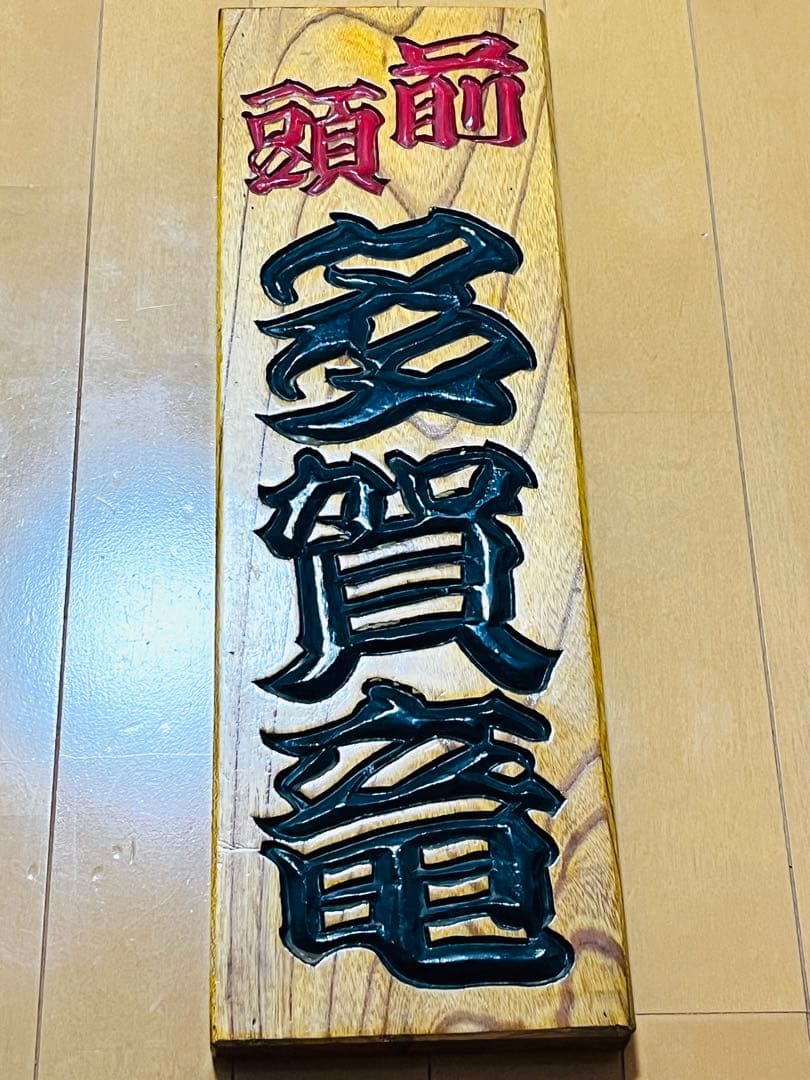 前頭
多賀竜